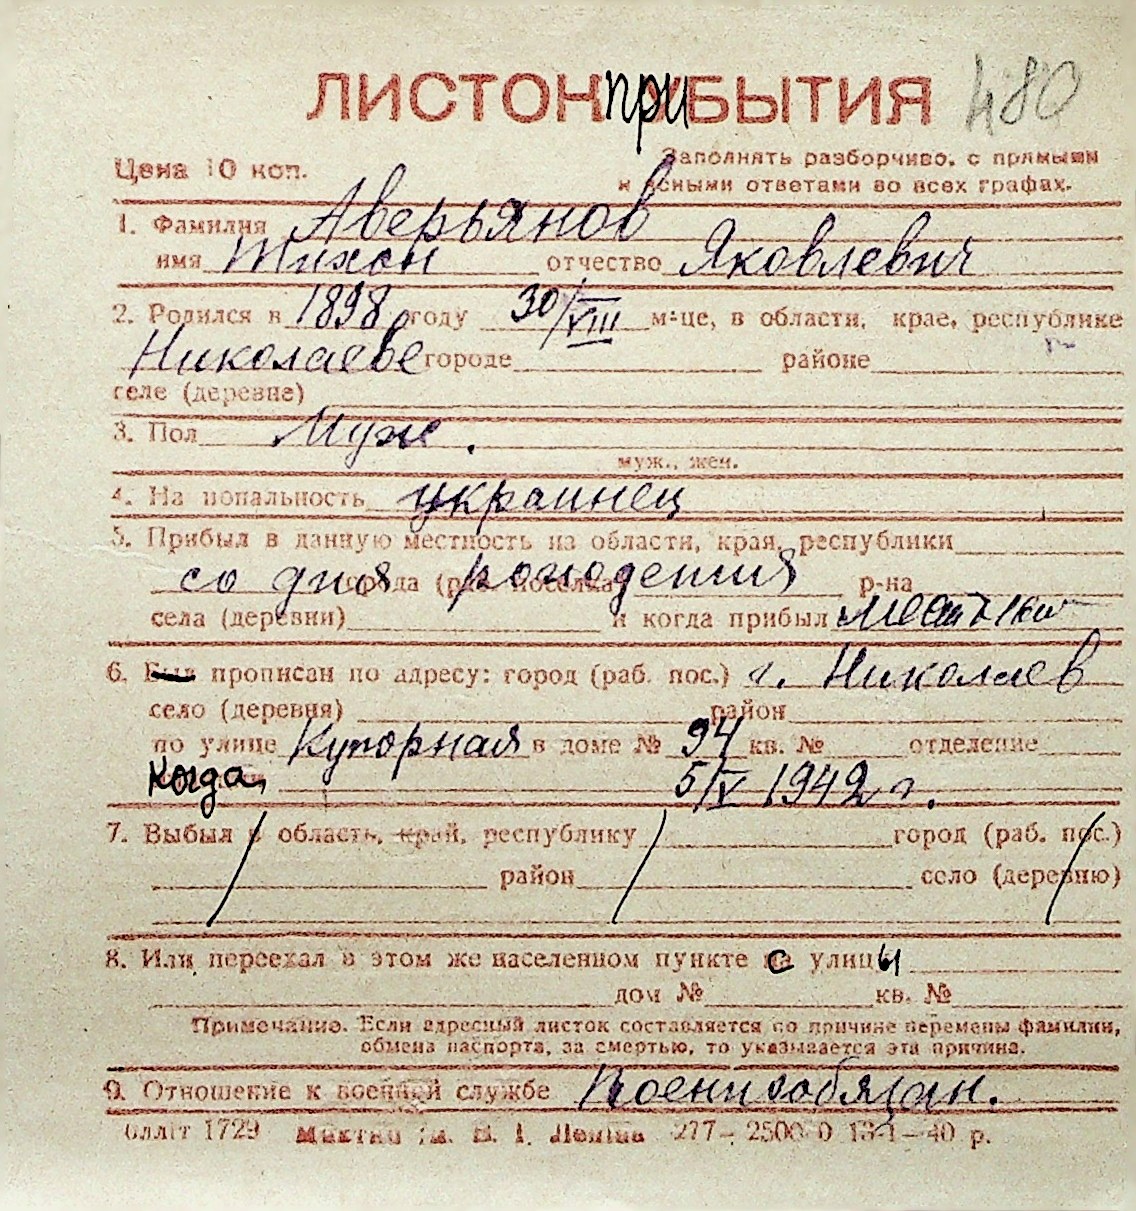 ЛИСТОК ПРИБЫТИЯ 480
Цена 10 коп.
Заполнять разборчиво, с прямыми
и ясными ответами во всех графах.
1. Фамилия Аверьянов
имя Тихон отчество Яковлевич
2. Родился в 1898 году 30/VIII м-це, в области, крае, республике
Николаеве городе районе
селе (деревне)
3. Пол Муж.
муж., жен.
4. Национальность украинец
5. Прибыл в данную местность из области, края, республики
со дня города (раб. поселка) рождения р-на
села (деревни) и когда прибыл
6. Был прописан по адресу: город (раб. пос.) г. Николаев
село (деревня) район
по улице Купорная в доме № 94 кв. № отделение
когда, 5/V 1942 г.
7. Выбыл в область, край, республику город (раб. пос.)
район село (деревню)
8. Или переехал в этом же населенном пункте с улицы
дом № кв. №
Примечание. Если адресный листок составляется по причине перемены фамилии,
обмена паспорта, за смертью, то указывается эта причина.
9. Отношение к военной службе Военнообязан.
1729 ім. В. І. Леніна 277— 2500 40 р.